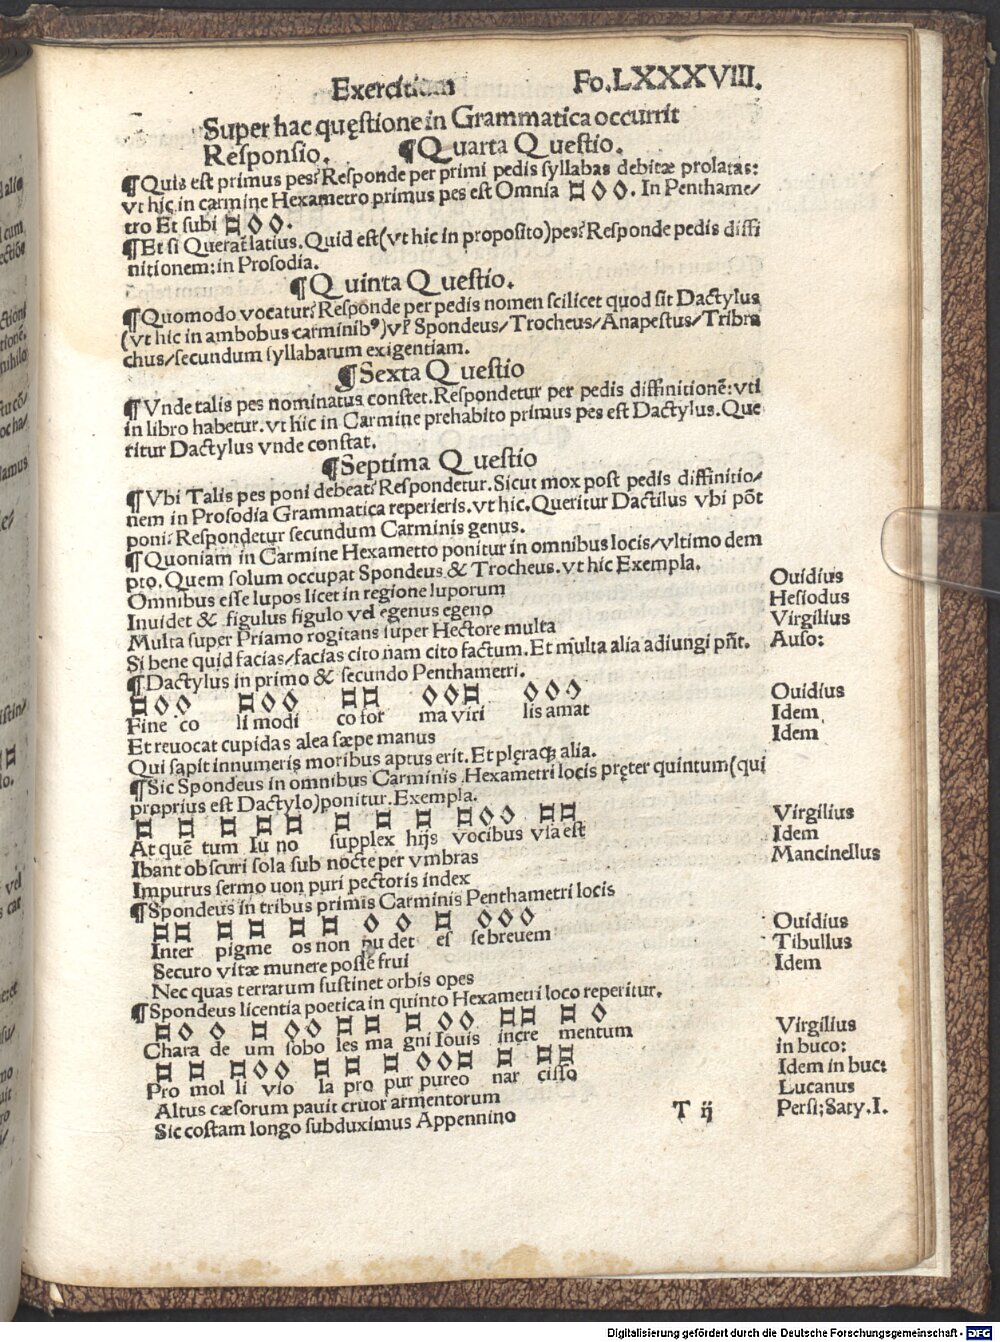 Exercitium Fo.LXXXVIII.
Super hac quęstione in Grammatica occurrit
Responsio. ¶Quarta Questio.
¶Quis est primus pes? Responde per primi pedis syllabas debitæ prolatas:
vt hic in carmine Hexametro primus pes est Omnia □◊◊. In Penthame/
tro Et subi □◊◊.
¶Et si Querat̃ latius. Quid est(vt hic in proposito)pes? Responde pedis diffi
nitionem: in Prosodia.
¶Quinta Questio.
¶Quomodo vocatur? Responde per pedis nomen scilicet quod sit Dactylus
(vt hic in ambobus carminib⁹)vł Spondeus/Trocheus/Anapestus/Tribra
chus/secundum syllabarum exigentiam.
¶Sexta Questio
¶Vnde talis pes nominatus constet. Respondetur per pedis diffinitionē: vti
in libro habetur. vt hic in Carmine prehabito primus pes est Dactylus. Que
ritur Dactylus vnde constat.
¶Septima Questio
¶Vbi Talis pes poni debeat? Respondetur. Sicut mox post pedis diffinitio/
nem in Prosodia Grammatica reperieris. vt hic. Queritur Dactilus vbi põt
poni? Respondetur secundum Carminis genus.
¶Quoniam in Carmine Hexametto ponitur in omnibus locis/vltimo dem
pto. Quem solum occupat Spondeus & Trocheus. vt hic Exempla.
Omnibus esse lupos licet in regione luporum Ouidius
Inuidet & figulus figulo vel egenus egeno Hesiodus
Multa super Priamo rogitans super Hectore multa Virgilius
Si bene quid facias/facias cito nam cito factum. Et multa alia adiungi pñt. Auso:
¶Dactylus in primo & secundo Penthametri.
□◊◊ □◊◊ □□ ◊◊□ ◊◊◊
Fine co li modi co for ma viri lis amat Ouidius
Et reuocat cupidas alea sæpe manus Idem
Qui sapit innumeris moribus aptus erit. Et pleraq; alia. Idem
¶Sic Spondeus in omnibus Carminis Hexametri locis pręter quintum(qui
proprius est Dactylo)ponitur. Exempla.
□ □ □ □ □ □ □ □ □◊◊ □□
At quē tum Iu no supplex hijs vocibus vsa est Virgilius
Ibant obscuri sola sub nocte per vmbras Idem
Impurus sermo uon puri pectoris index Mancinellus
¶Spondeus in tribus primis Carminis Penthametri locis
□□ □□ □□ ◊ ◊ □ ◊◊◊
Inter pigme os non pu det es se breuem Ouidius
Securo vitæ munere posse frui Tibullus
Nec quas terrarum sustinet orbis opes Idem
¶Spondeus licentia poetica in quinto Hexametri loco reperitur.
□◊ ◊ □ ◊◊ □□ □ ◊◊ □□ □ ◊
Chara de um sobo les ma gni Iouis incre mentum Virgilius
in buco:
□ □ □◊◊ □ □ □ ◊◊□ □ □□
Pro mol li vio la pro pur pureo nar cisso Idem in buc:
Altus cæsorum pauit cruor armentorum Lucanus
Sic costam longo subduximus Appennino Persi; Saty. I.
T ij
Digitalisierung gefördert durch die Deutsche Forschungsgemeinschaft - DFG